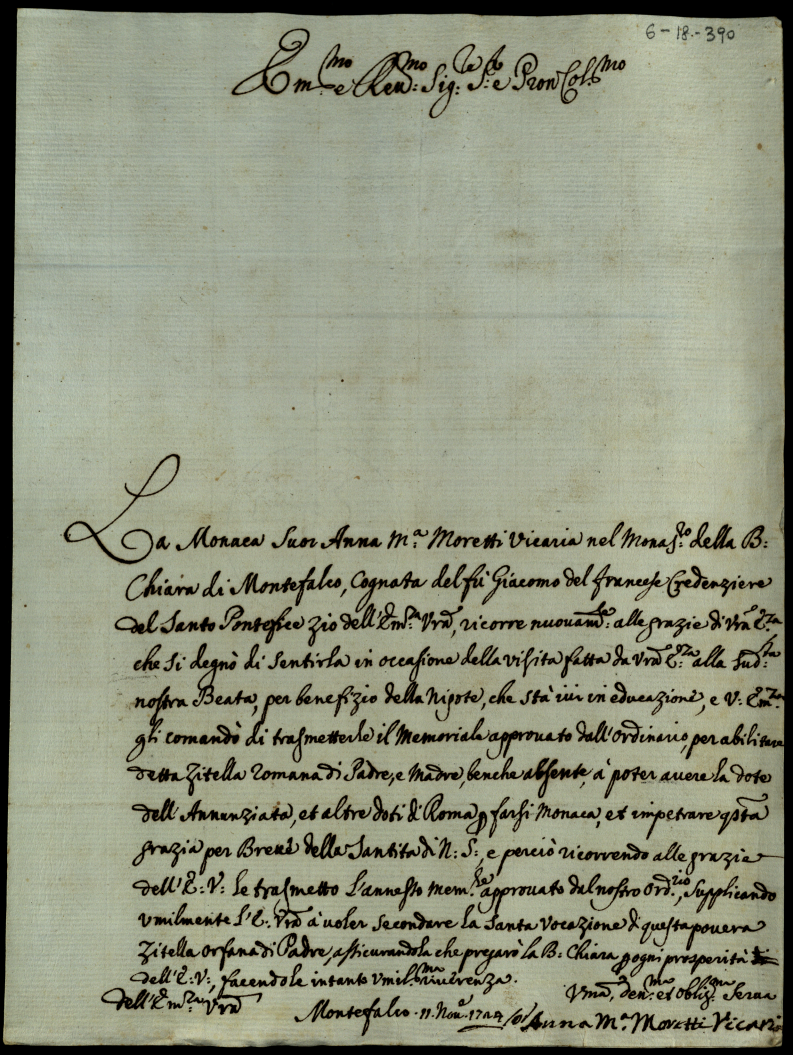 6-18.-390
Em.mo e Reu.mo Sig.re S.e e Pron Col.mo
La Monaca Suor Anna M.a Moretti Vicaria nel Monas.ro della B:
Chiara di Montefalco, Cognata del fù Giacomo del francese Credenziere
del Santo Pontefice zio dell'Em.za Vra, ricorre nuouam.te alle grazie di Vra E.za
che si degnò di sentirla in occasione della visita fatta da Vra E.za alla sud.ta
nostra Beata, per benefizio della Nipote, che stà iui in educazione, e V: Em.za
gli comandò di trasmetterle il Memoriale approuato dall'Ordinario, per abilitare
detta Zitella Romana di Padre, e Madre, benche absente, à poter auere la dote
dell'Annunziata, et altre doti di Roma p farsi Monaca, et impetrare qsta
grazia per Breue della Santita di N: S:, e perciò ricorrendo alle grazie
dell'E: V: le trasmetto l'annesso mem.le approuato dal nostro Ord.rio, supplicando
Vmilmente l'E: Vra à uoler secondare la Santa Vocazione di questa pouera
Zitella orfana di Padre, assicurandola che pregarò la B: Chiara p ogni prosperità
dell'E: V:, facendole intanto Vmil.ma riuerenza.
dell'Em.za Vra
Vma, deu.ma et oblig.ma Serua
Montefalco 11. Nou.e Anna M.a Moretti Vicaria